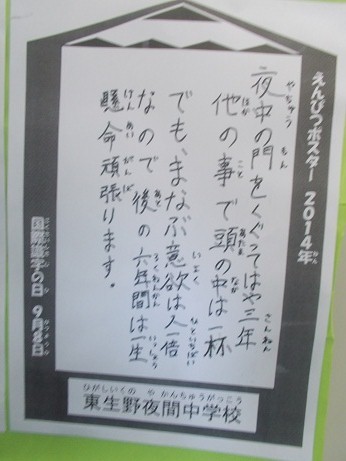 えんぴつポスター 2014年
夜中の門をくぐってはや三年
他の事で頭の中は一杯
でも、まなぶ意欲は人一倍
なので後の六年間は一生
懸命頑張ります。
国際識字の日 9月8日
ひがしいくの やかんちゅうがっこう
東生野夜間中学校